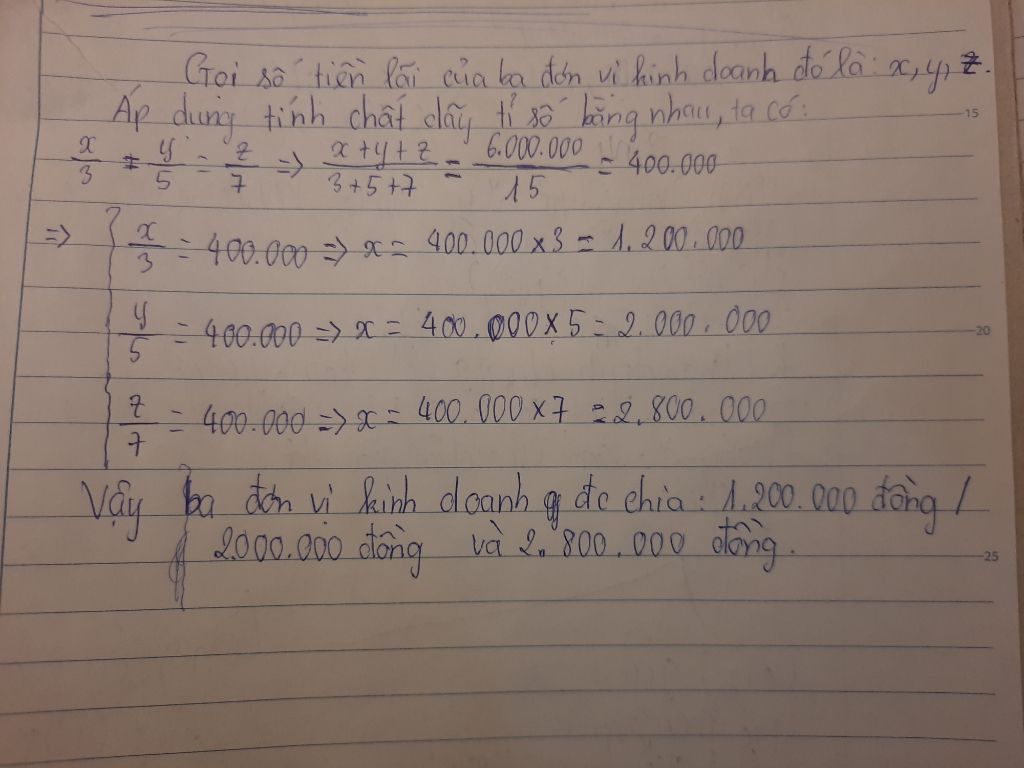 Gọi số tiền lãi của ba đơn vị kinh doanh đó là: x, y, z.
Áp dụng tính chất dãy tỉ số bằng nhau, ta có:
x/3 = y/5 = z/7 => (x+y+z)/(3+5+7) = 6.000.000/15 = 400.000
=> { x/3 = 400.000 => x = 400.000 x 3 = 1.200.000
y/5 = 400.000 => x = 400.000 x 5 = 2.000.000
z/7 = 400.000 => x = 400.000 x 7 = 2.800.000
Vậy ba đơn vị kinh doanh đc chia: 1.200.000 đồng /
2.000.000 đồng và 2.800.000 đồng.
15
20
25